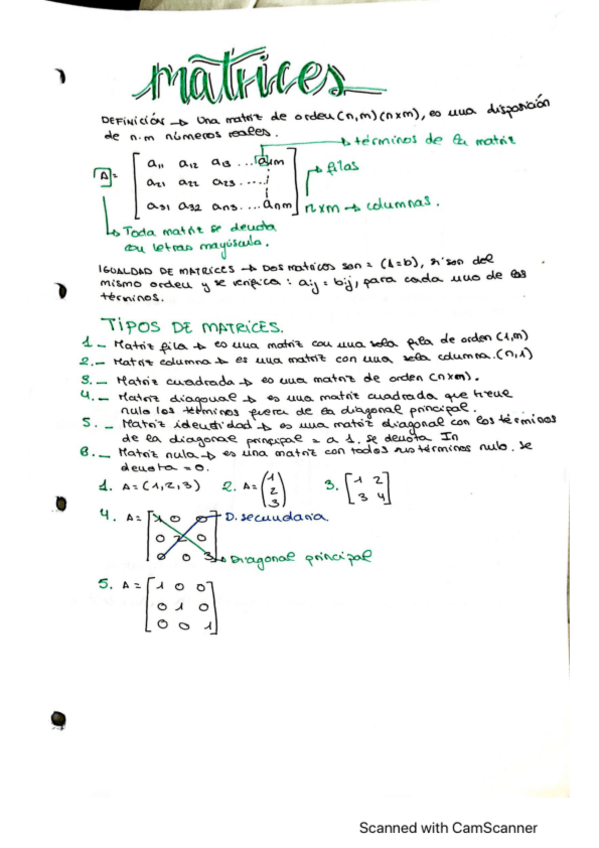 matrices
DEFINICIÓN → Una matriz de orden (n,m) (nxm), es una disposición
de n.m números reales.
→ términos de la matriz
A = [ a11 a12 a13 ... a1m
a21 a22 a23 ....
a31 a32 an3. ... anm ]
→ filas
nxm → columnas.
→ Toda matriz se denota
con letras mayúscula.
IGUALDAD DE MATRICES → Dos matrices son = (A=b), si son del
mismo orden y se verifica: aij = bij, para cada uno de los
términos.
TIPOS DE MATRICES.
1 - Matriz fila → es una matriz con una sola fila de orden (1,m)
2.- Matriz columna → es una matriz con una sola columna. (n,1)
3.- Matriz cuadrada → es una matriz de orden (nxm).
4.- Matriz diagonal → es una matriz cuadrada que tiene
nulo los términos fuera de la diagonal principal.
5. - Matriz identidad → es una matriz diagonal con los términos
de la diagonal principal = a 1. Se denota In
6.- Matriz nula → es una matriz con todos sus términos nulo. Se
denota = 0.
1. A = (1,2,3) 2. A = (1 3. [1 2
2 3 4]
3)
4. A = [1 0 0 → D. secundaria.
0 2 0
0 0 3] → Diagonal principal
5. A = [1 0 0
0 1 0
0 0 1]
Scanned with CamScanner